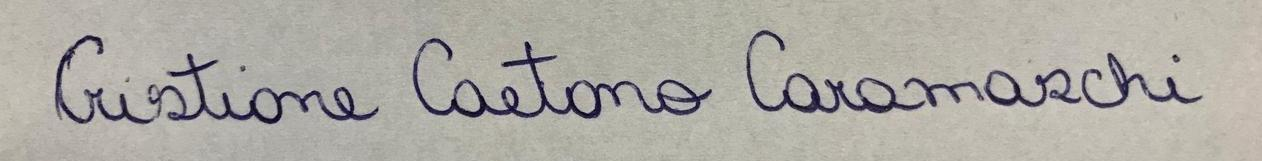 Cristiane Caetano Caramaschi